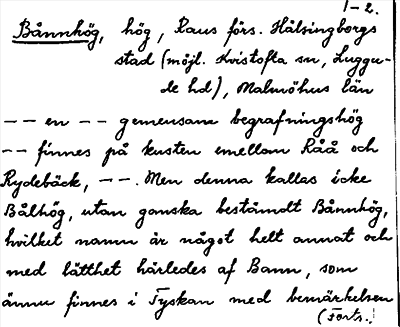 1-2.
Bånnhög, hög, Raus förs. Hälsingborgs
stad (möjl. Kvistofta sn, Luggu-
de hd), Malmöhus län
-- en -- gemensam begrafningshög
-- finnes på kusten emellan Råå och
Rydebäck, --. Men denna kallas icke
Bålhög, utan ganska bestämdt Bånnhög,
hvilket namn är något helt annat och
med lätthet härledes af Bann, som
ännu finnes i Tyskan med bemärkelsen
(Forts.)